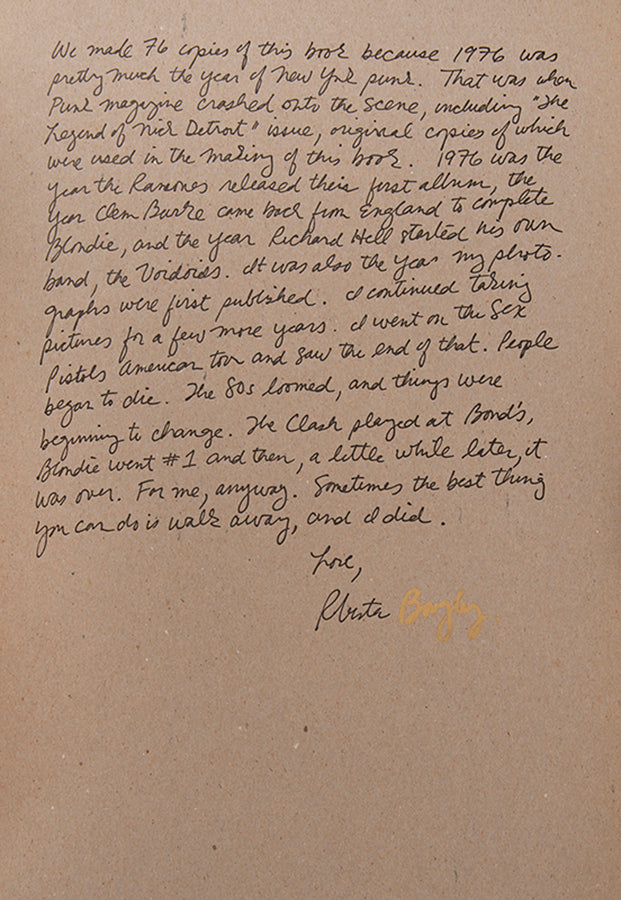 We made 76 copies of this book because 1976 was
pretty much the year of New York punk. That was when
Punk magazine crashed onto the scene, including "The
Legend of Nick Detroit" issue, original copies of which
were used in the making of this book. 1976 was the
year the Ramones released their first album, the
year Clem Burke came back from England to complete
Blondie, and the year Richard Hell started his own
band, the Voidoids. It was also the year my photo-
graphs were first published. I continued taking
pictures for a few more years. I went on the Sex
Pistols American tour and saw the end of that. People
began to die. The 80s loomed, and things were
beginning to change. The Clash played at Bond's,
Blondie went #1 and then, a little while later, it
was over. For me, anyway. Sometimes the best thing
you can do is walk away, and I did.
Love,
Roberta Bayley